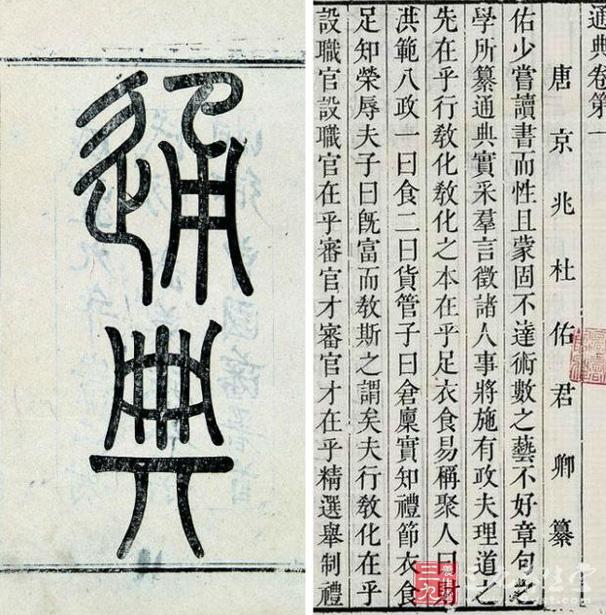 通典
通典卷第一
唐京兆杜佑君卿纂
佑少嘗讀書而性且蒙固不達術數之藝不好章句之
學所纂通典實采羣言徵諸人事將施有政夫理道之
先在乎行教化教化之本在乎足衣食易稱聚人曰財
洪範八政一曰食二曰貨管子曰倉廩實知禮節衣食
足知榮辱夫子曰既富而教斯之謂矣夫行教化在乎
設職官設職官在乎審官才審官才在乎精選舉制禮